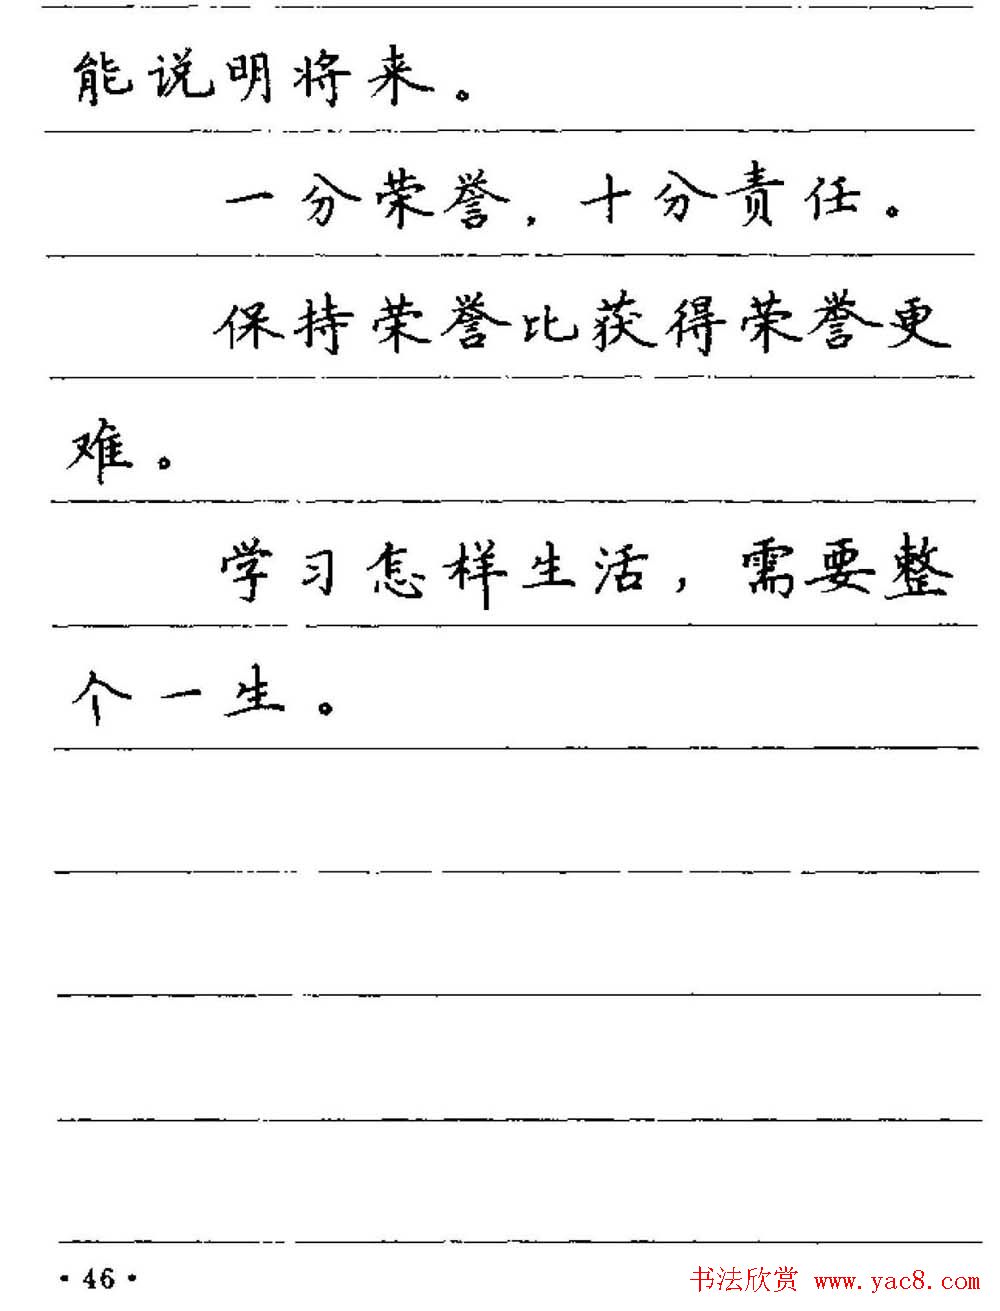 能说明将来。
一分荣誉，十分责任。
保持荣誉比获得荣誉更
难。
学习怎样生活，需要整
个一生。
·46·
书法欣赏 www.yac8.com